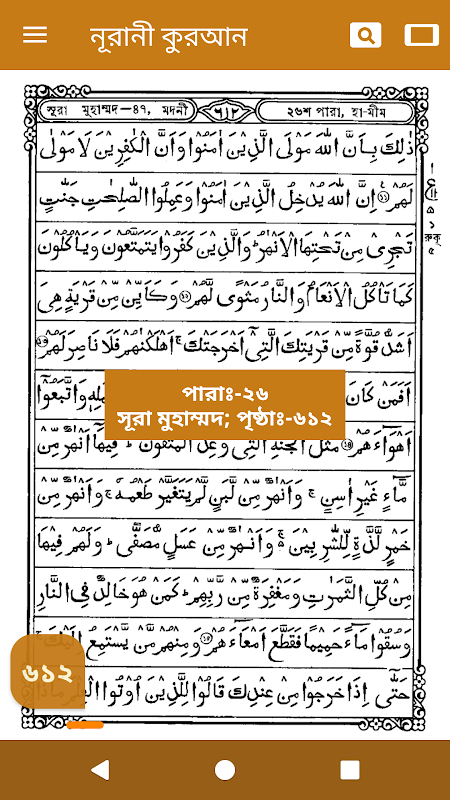 নূরানী কুরআন
সূরা মুহাম্মদ—৪৭, মদনী
৬১২
২৬শ পারা, হা-মীম
ذٰلِكَ بِاَنَّ اللّٰهَ مَوْلَى الَّذِيْنَ اٰمَنُوْا وَاَنَّ الْكٰفِرِيْنَ لَا مَوْلٰى
لَهُمْ ⑪ اِنَّ اللّٰهَ يُدْخِلُ الَّذِيْنَ اٰمَنُوْا وَعَمِلُوا الصّٰلِحٰتِ جَنّٰتٍ
تَجْرِىْ مِنْ تَحْتِهَا الْاَنْهٰرُ ؕ وَالَّذِيْنَ كَفَرُوْا يَتَمَتَّعُوْنَ وَيَاْكُلُوْنَ
كَمَا تَاْكُلُ الْاَنْعَامُ وَالنَّارُ مَثْوًى لَّهُمْ ⑫ وَكَاَيِّنْ مِّنْ قَرْيَةٍ هِىَ
اَشَدُّ قُوَّةً مِّنْ قَرْيَتِكَ الَّتِىْۤ اَخْرَجَتْكَ ۚ اَهْلَكْنٰهُمْ فَلَا نَاصِرَ لَهُمْ ⑬
اَفَمَنْ كَانَ وَاتَّبَعُوْۤا
পারাঃ-২৬
সূরা মুহাম্মদ; পৃষ্ঠাঃ-৬১২
اَهْوَآءَهُمْ ⑭ مَثَلُ الْجَنَّةِ الَّتِىْ وُعِدَ الْمُتَّقُوْنَ ؕ فِيْهَاۤ اَنْهٰرٌ مِّنْ
مَّآءٍ غَيْرِ اٰسِنٍ ۚ وَاَنْهٰرٌ مِّنْ لَّبَنٍ لَّمْ يَتَغَيَّرْ طَعْمُهٗ ۚ وَاَنْهٰرٌ مِّنْ
خَمْرٍ لَّذَّةٍ لِّلشّٰرِبِيْنَ ۚ وَاَنْهٰرٌ مِّنْ عَسَلٍ مُّصَفًّى ؕ وَلَهُمْ فِيْهَا
مِنْ كُلِّ الثَّمَرٰتِ وَمَغْفِرَةٌ مِّنْ رَّبِّهِمْ ؕ كَمَنْ هُوَ خَالِدٌ فِى النَّارِ
وَسُقُوْا مَآءً حَمِيْمًا فَقَطَّعَ اَمْعَآءَهُمْ ⑮ وَمِنْهُمْ مَّنْ يَّسْتَمِعُ اِلَيْكَ ۚ
حَتّٰىۤ اِذَا خَرَجُوْا مِنْ عِنْدِكَ قَالُوْا لِلَّذِيْنَ اُوْتُوا الْعِلْمَ مَاذَا
৬১২
রুকু
৫